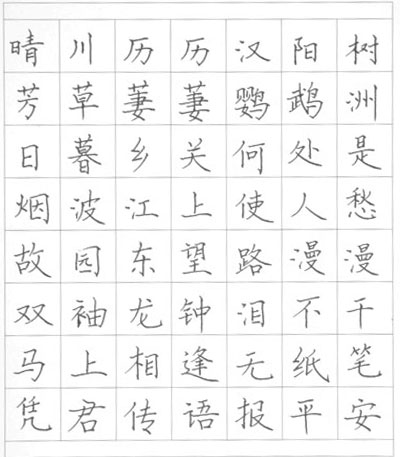 晴川历历汉阳树
芳草萋萋鹦鹉洲
日暮乡关何处是
烟波江上使人愁
故园东望路漫漫
双袖龙钟泪不干
马上相逢无纸笔
凭君传语报平安